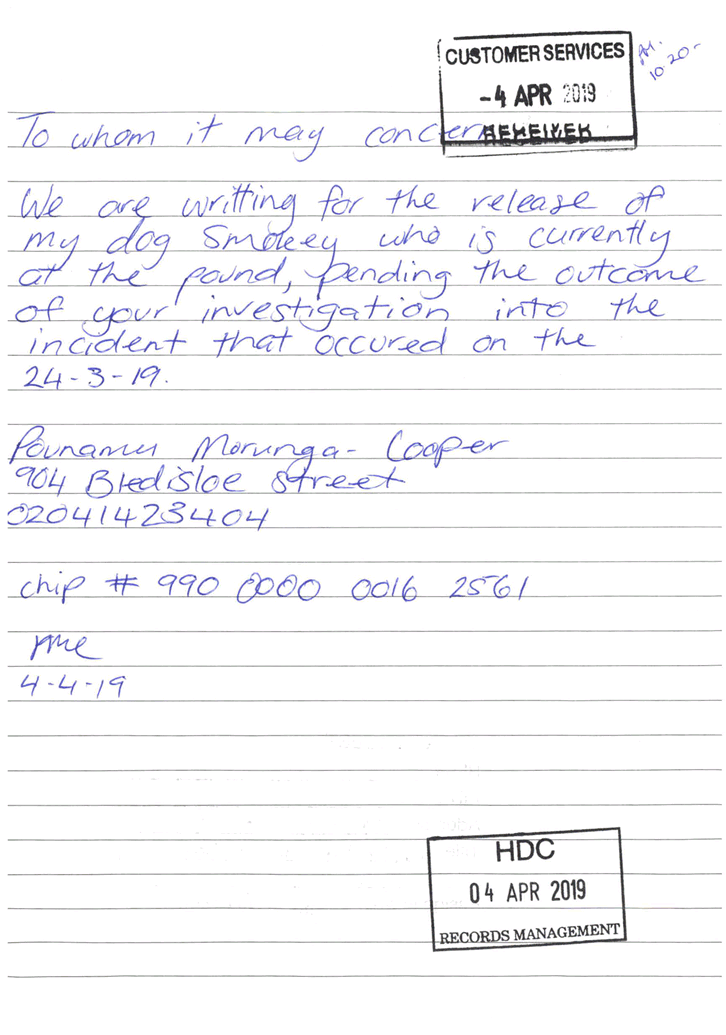 CUSTOMER SERVICES
-4 APR 2019
RECEIVED
10-20-
To whom it may concern
We are writting for the release of
my dog Smokeey who is currently
at the pound, pending the outcome
of your investigation into the
incident that occured on the
24-3-19.
Pounamu Morunga-Cooper
904 Bledisloe Street
02041423404
chip # 990 0000 0016 2561
4-4-19
HDC
04 APR 2019
RECORDS MANAGEMENT